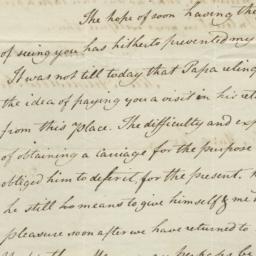 The hope of soon having the
of seeing you has hitherto prevented my
It was not till today that Papa relinq
the idea of paying you a visit in his ret
from this place. The difficulty and exp
of obtaining a carriage for the purpose
obliged him to defer it for the present.
he still has means to give himself & me
pleasure soon after we have returned to